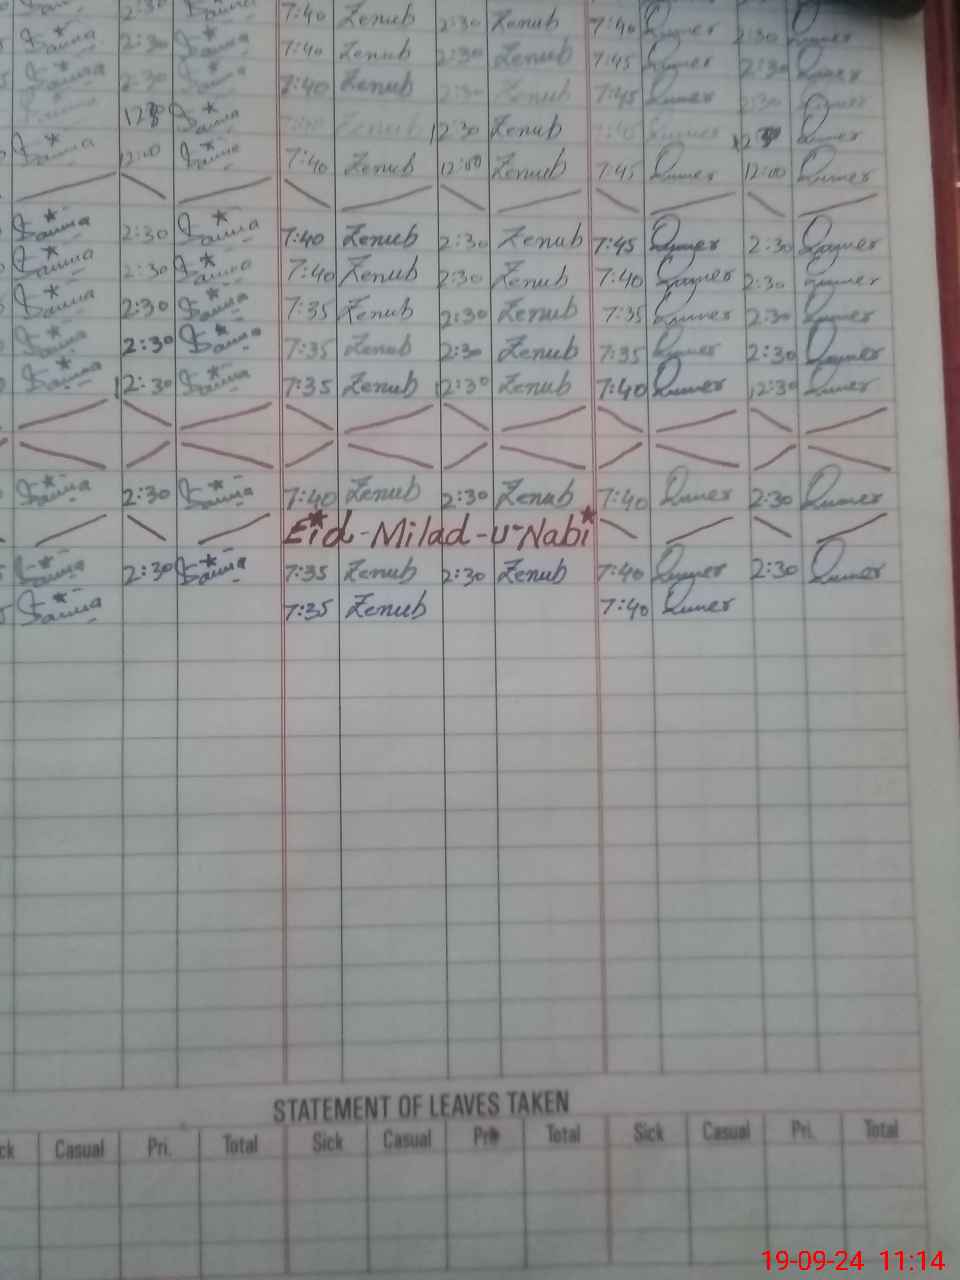 2:30 Sauna 7:40 Zenub 2:30 Zenub 7:40 Qumer 2:30
Sauna 2:30 Sauna 7:40 Zenub 2:30 Zenub 7:45 Qumer 2:30 Qumer
Sauna 2:30 Sauna 7:40 Zenub 2:30 Zenub 7:45 Qumer 2:30 Qumer
Sauna 7:40 Zenub 12:30 Zenub 7:45 Qumer Qumer
Sauna 12:00 Sauna 7:40 Zenub 12:00 Zenub 7:45 Qumer 12:00 Qumer
Sauna 2:30 Sauna 7:40 Zenub 2:30 Zenub 7:45 Qumer 2:30 Qumer
Sauna 2:30 Sauna 7:40 Zenub 2:30 Zenub 7:40 Qumer 2:30 Qumer
Sauna 2:30 Sauna 7:35 Zenub 2:30 Zenub 7:35 Qumer 2:30 Qumer
Sauna 2:30 Sauna 7:35 Zenub 2:30 Zenub 7:35 Qumer 2:30 Qumer
Sauna 12:30 Sauna 7:35 Zenub 12:30 Zenub 7:40 Qumer 12:30 Qumer
Sauna 2:30 Sauna 7:40 Zenub 2:30 Zenub 7:40 Qumer 2:30 Qumer
Eid-Milad-u-Nabi
Sauna 2:30 Sauna 7:35 Zenub 2:30 Zenub 7:40 Qumer 2:30 Qumer
Sauna 7:35 Zenub 7:40 Qumer
STATEMENT OF LEAVES TAKEN
ck Casual Pri. Total Sick Casual Pri. Total Sick Casual Pri. Total
19-09-24 11:14